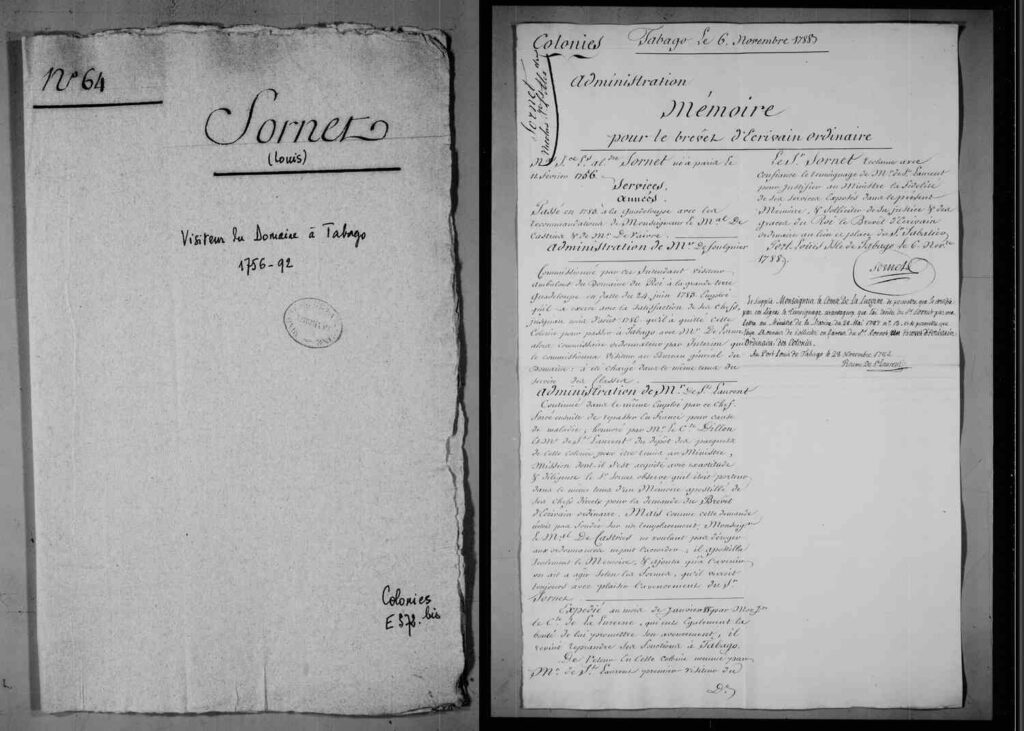 Nº 64
Sornet
(Louis)
Visiteur du Domaine à Tabago
1756-92
Colonies
E 373 bis
Colonies
Tabago Le 6. Novembre 1788
Sornet
Administration
Mémoire
pour le brevet d'Ecrivain ordinaire
Sornet né à paris le
11. février 1756.
Services.
années.
Passé en 1783. à la Guadeloupe avec les
recommandations de Monseigneur le Mal. De
Castries & de Mr. De
Administration de Mr. De foulquier
Commissionné par cet Intendant visiteur
ambulant du Domaine du Roi à la grande terre
Guadeloupe en date du 24. juin 1783. Emploi
qu'il a exercé avec la satisfaction de ses chefs,
jusqu'au mois d'août 1786. qu'il a quitté cette
Colonie pour passer à Tabago avec Mr. De
alors commissaire ordonnateur par Interim qui
le commissionna Visiteur au Bureau général du
Domaine; a été chargé dans le même tems du
Service des Classes.
administration de Mr. De St. Laurent
Continué dans le même Emploi par ce Chef.
Forcé ensuite de repasser En France pour cause
de maladie; honoré par Mr. le Cte. Dillon
et Mr. de St. Laurent du dépôt des paquets
de cette Colonie pour être remis au Ministre,
Mission dont il s'est acquité avec exactitude
& diligence le Sr. Sornet observe qu'il était porteur
dans le même tems d'un Mémoire apostillé de
ses chefs directs pour la demande du Brevet
d'Ecrivain ordinaire. Mais comme cette demande
n'étoit pas fondée sur un remplacement, Monseigr.
le Mal. De Castries ne voulant pas déroger
aux ordonnances n'ayant l'accorder; il apostilla
seulement le Mémoire, & ajouta qu'à l'avenir
on ait à agir selon les formes, qu'il verroit
toujours avec plaisir l'avancement du Sr.
Sornet.
Expédié au mois de Janvier par Mgr.
le Cte. de la Luzerne, qui eut également la
bonté de lui promettre son avancement, il
revint reprendre ses fonctions à Tabago.
De retour En cette colonie nommé par
Mr. de St. Laurent premier visiteur du
De
Le Sr. Sornet reclame avec
confiance le temoignage de Mr. de St. Laurent
pour justifier au Ministre la fidélité
de ses services Exposés dans le présent
Mémoire, & solliciter de sa justice & des
graces du Roi le Brevet d'Ecrivain
ordinaire au lieu et place du Sr.
Port-Louis Isle de Tabago le 6. Novbre.
1788.
Sornet
Je supplie Monseigneur le Comte De La Luzerne de permettre que je
par en lignes le témoignage avantageux que j'ai rendu du Sr. Sornet par ma
Lettre au Ministre de la Marine du 28 Mai 1787 nº. 13. et de permettre que
j'aye l'honneur de solliciter en faveur du Sr. Sornet un brevet d'Ecrivain
Ordinaire des Colonies.
Au Port Louis de Tabago le 28 Novembre
Roume de St Laurent